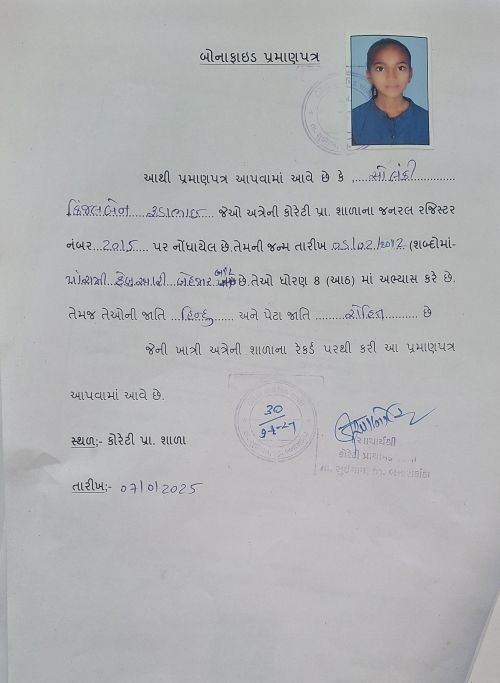 બોનાફાઇડ પ્રમાણપત્ર
આથી પ્રમાણપત્ર આપવામાં આવે છે કે ,....સોલંકી............
કિંજલબેન ... જેઓ અત્રેની કોરેટી પ્રા. શાળાના જનરલ રજિસ્ટર
નંબર ...2015..... પર નોંધાયેલ છે.તેમની જન્મ તારીખ ..05/02/2012 (શબ્દોમાં-
પાંચમી ફેબ્રુઆરી બેહજાર બાર છે.તેઓ ધોરણ 8 (આઠ) માં અભ્યાસ કરે છે.
તેમજ તેઓની જાતિ ...હિન્દુ...... અને પેટા જાતિ .........રોહિત.......... છે
જેની ખાત્રી અત્રેની શાળાના રેકર્ડ પરથી કરી આ પ્રમાણપત્ર
આપવામાં આવે છે.
30
સ્થળ:- કોરેટી પ્રા. શાળા
આચાર્યશ્રી
કોરેટી પ્રાથમિક
તા. સુઈગામ, જી. બનાસકાંઠા
તારીખ:- 07/0/2025